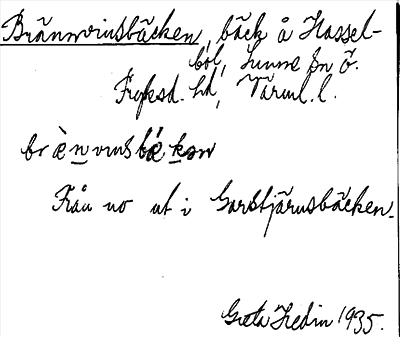 Brännvinsbäcken, bäck å Hassel-
bol, Sunne sn Ö.
Fryksd. hd, Värml. l.
bræ̀nvinsbækən
Från no ut i Garstjärnsbäcken.
Greta Hedin 1935.